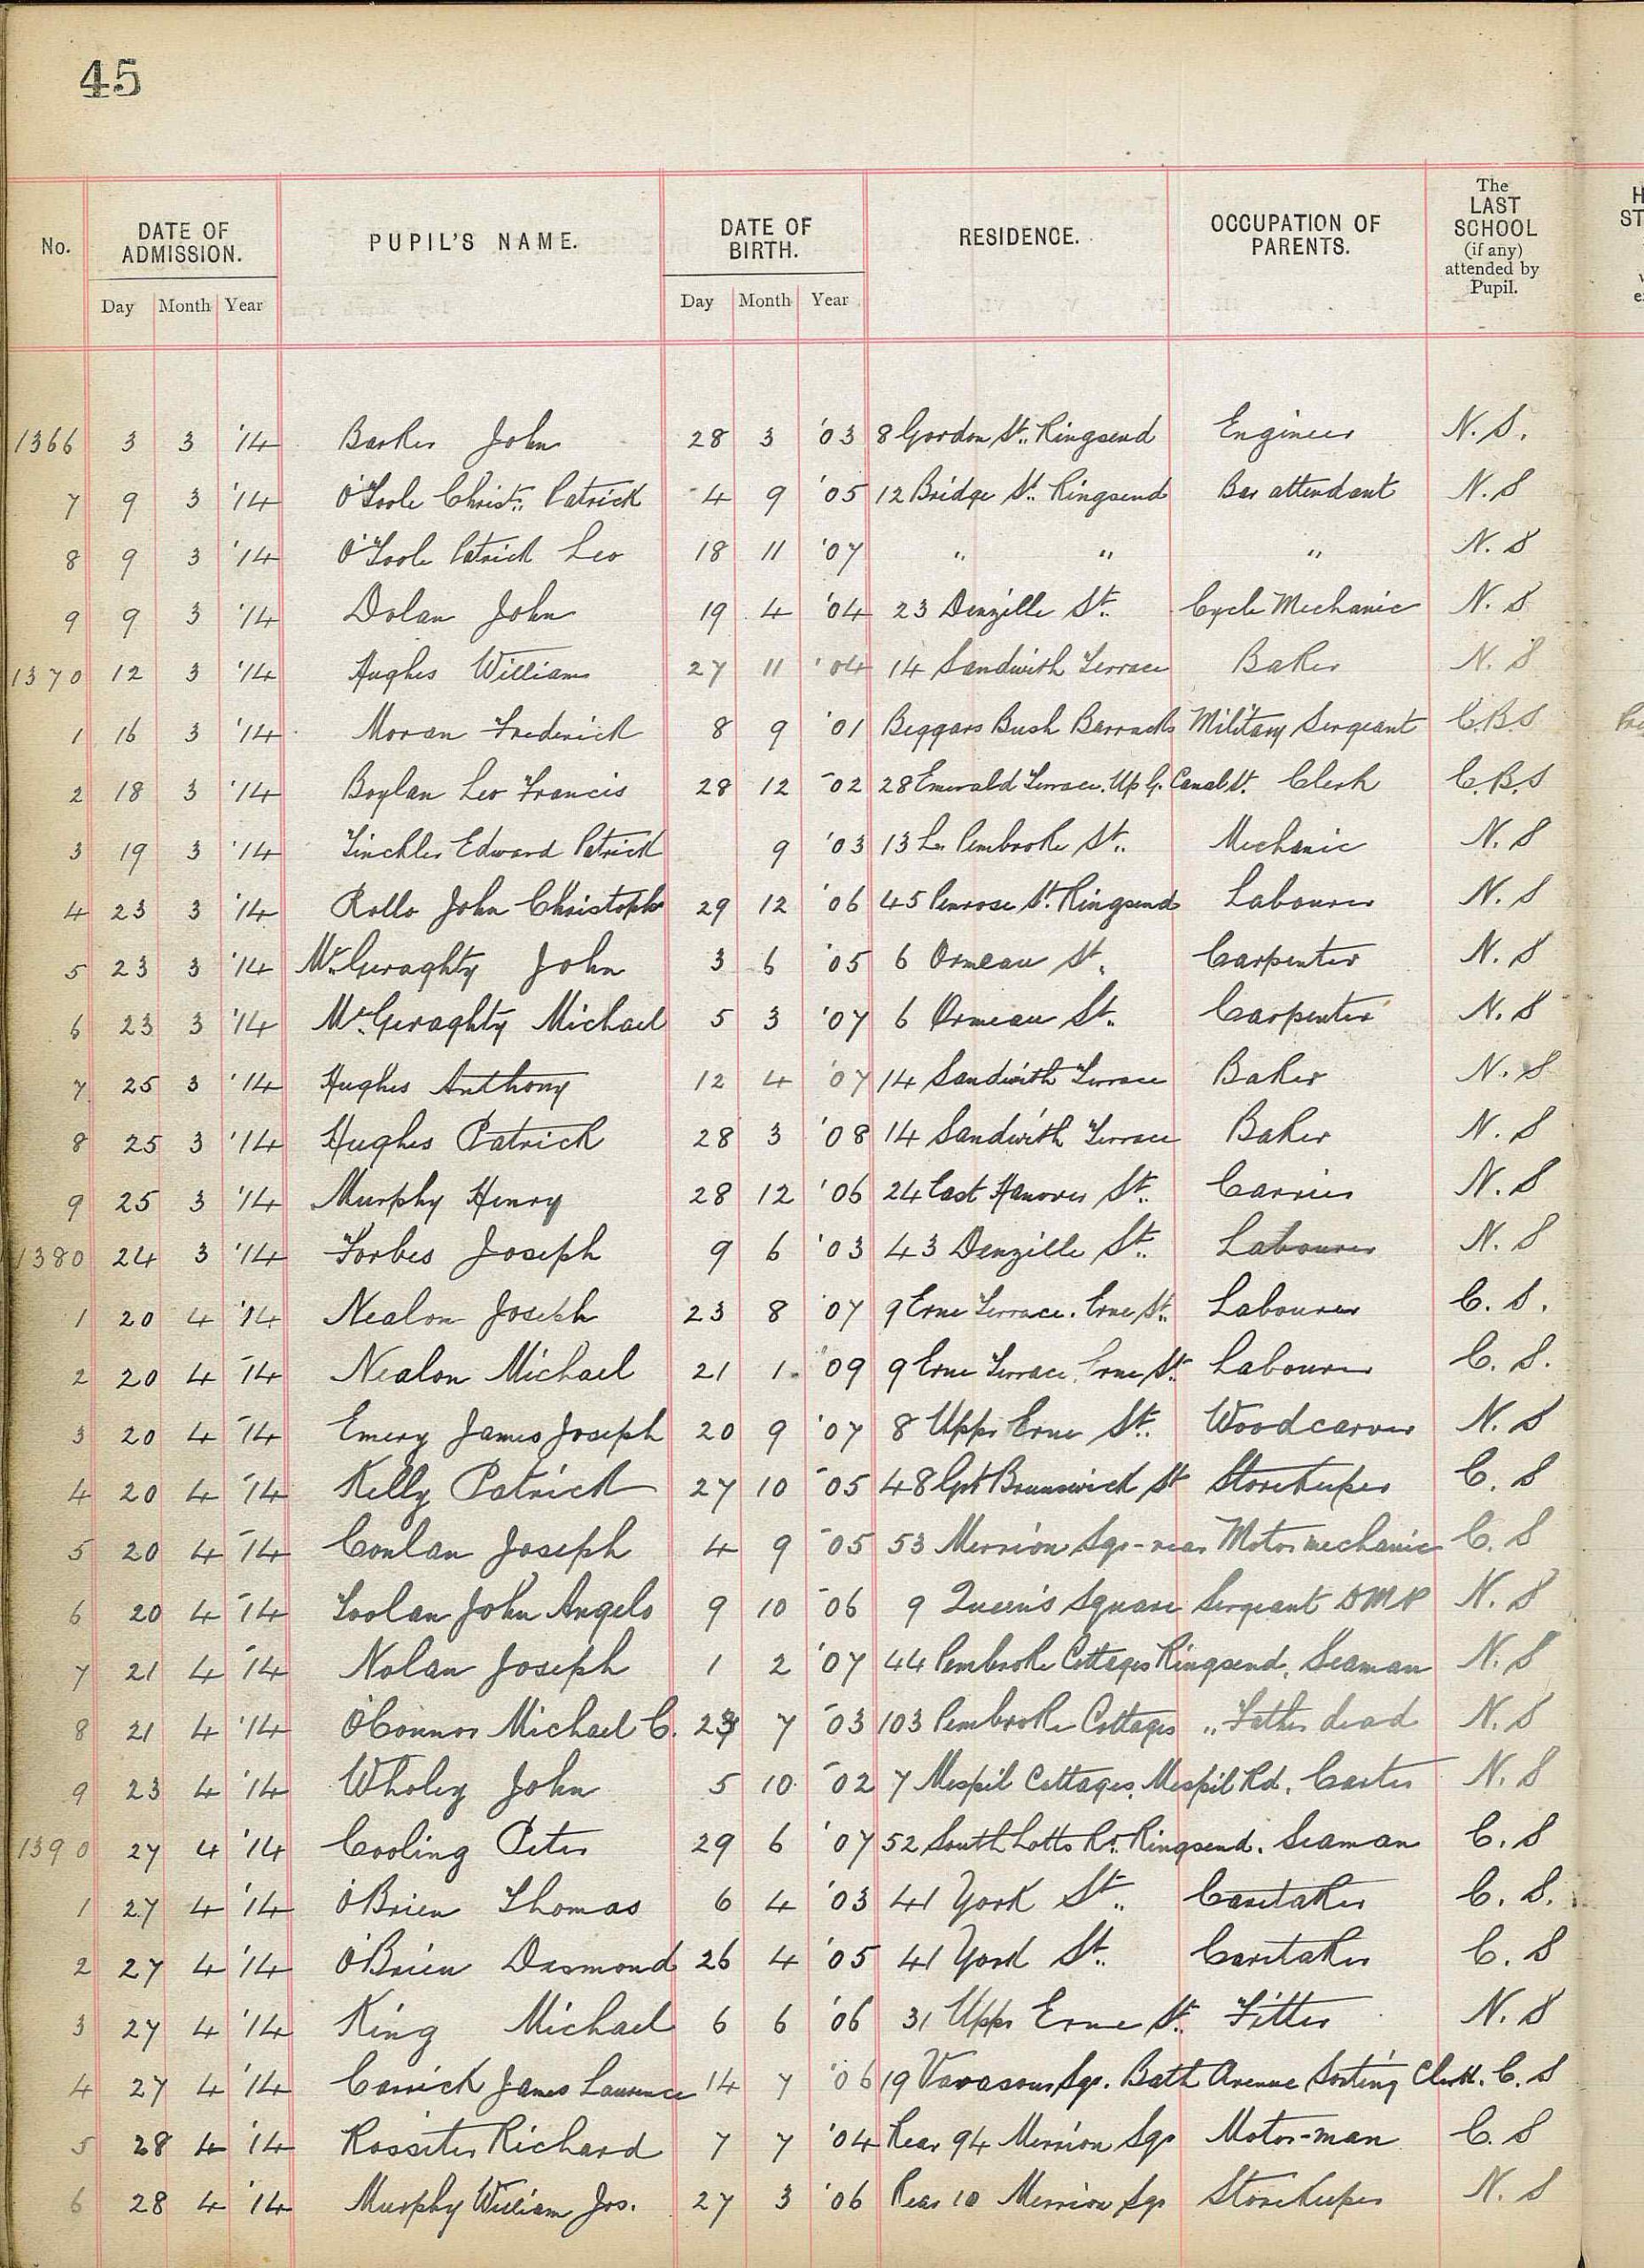 45
No. DATE OF ADMISSION. PUPIL'S NAME. DATE OF BIRTH. RESIDENCE. OCCUPATION OF PARENTS. The LAST SCHOOL (if any) attended by Pupil.
Day Month Year Day Month Year
1366 3 3 '14 Barker John 28 3 '03 8 Gordon St. Ringsend Engineer N. S.
7 9 3 '14 O'Toole Christr. Patrick 4 9 '05 12 Bridge St. Ringsend Bar attendant N. S
8 9 3 '14 O'Toole Patrick Leo 18 11 '07 " " " N. S
9 9 3 '14 Dolan John 19 4 '04 23 Denzille St. Cycle Mechanic N. S
1370 12 3 '14 Hughes William 27 11 '04 14 Sandwith Terrace Baker N. S
1 16 3 '14 Moran Frederick 8 9 '01 Beggars Bush Barracks Military Sergeant C.B.S
2 18 3 '14 Boylan Leo Francis 28 12 '02 28 Emerald Terrace. Up G. Canal St. Clerk C.B.S
3 19 3 '14 Tinckler Edward Patrick 9 '03 13 Lr. Pembroke St. Mechanic N. S
4 23 3 '14 Rollo John Christopher 29 12 '06 45 Penrose St. Ringsend Labourer N. S
5 23 3 '14 McGeraghty John 3 6 '05 6 Ormeau St. Carpenter N. S
6 23 3 '14 McGeraghty Michael 5 3 '07 6 Ormeau St. Carpenter N. S
7 25 3 '14 Hughes Anthony 12 4 '07 14 Sandwith Terrace Baker N. S
8 25 3 '14 Hughes Patrick 28 3 '08 14 Sandwith Terrace Baker N. S
9 25 3 '14 Murphy Henry 28 12 '06 24 East Hanover St. Carrier N. S
1380 24 3 '14 Forbes Joseph 9 6 '03 43 Denzille St. Labourer N. S
1 20 4 '14 Nealon Joseph 23 8 '07 9 Erne Terrace. Erne St. Labourer C. S.
2 20 4 '14 Nealon Michael 21 1 '09 9 Erne Terrace, Erne St. Labourer C. S.
3 20 4 '14 Emery James Joseph 20 9 '07 8 Uppr Erne St. Woodcarver N. S
4 20 4 '14 Kelly Patrick 27 10 '05 48 Grt Brunswick St Storekeeper C. S
5 20 4 '14 Conlan Joseph 4 9 '05 53 Merrion Sqr - rear Motor mechanic C. S
6 20 4 '14 Toolan John Angelo 9 10 '06 9 Queen's Square Sergeant DMP N. S
7 21 4 '14 Nolan Joseph 1 2 '07 44 Pembroke Cottages Ringsend. Seaman N. S
8 21 4 '14 O'Connor Michael C. 7 '03 103 Pembroke Cottages " Father dead N. S
9 23 4 '14 Wholey John 5 10 '02 7 Mespil Cottages, Mespil Rd. Carter N. S
1390 27 4 '14 Cooling Peter 29 6 '07 52 South Lotts Rd. Ringsend. Seaman C. S
1 27 4 '14 O'Brien Thomas 6 4 '03 41 York St. Caretaker C. S.
2 27 4 '14 O'Brien Desmond 26 4 '05 41 York St. Caretaker C. S
3 27 4 '14 King Michael 6 6 '06 31 Uppr Erne St. Fitter N. S
4 27 4 '14 Carrick James Laurence 14 7 '06 19 Vavasour Sqr. Bath Avenue Sorting Clerk. C. S
5 28 4 '14 Rossiter Richard 7 7 '04 Rear 94 Merrion Sqr Motor-man C. S
6 28 4 '14 Murphy William Jos. 27 3 '06 Rear 10 Merrion Sqr Storekeeper N. S